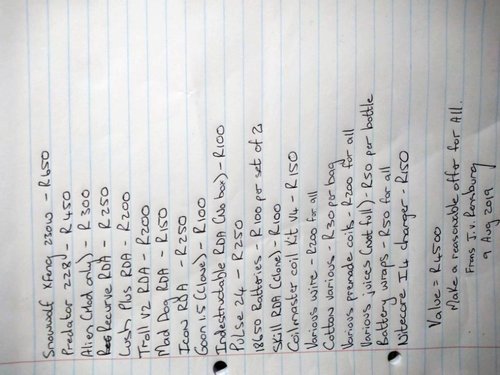 Snowwolf Xfeng 230w - R650
Predator 228 - R450
Alien (Mod only) - R300
Recurve RDA - R250
Lush Plus RDA - R200
Troll V2 RDA - R200
Mad Dog RDA - R150
Icon RDA - R250
Goon 1.5 (clone) - R100
Indestructable RDA (No box) - R100
Pulse 24 - R250
18650 Batteries - R100 per set of 2
Skill RDA (clone) - R100
Coilmaster coil Kit V4 - R150
Various wire - R200 for all
Cotton various - R30 per bag
Various premade coils - R200 for all
Various juices (not full) - R50 per bottle
Battery wraps R50 for all
Nitecore I4 charger - R150
Value = R4500
Make a reasonable offer for All.
Frans J.v. Rensburg
9 Aug 2019